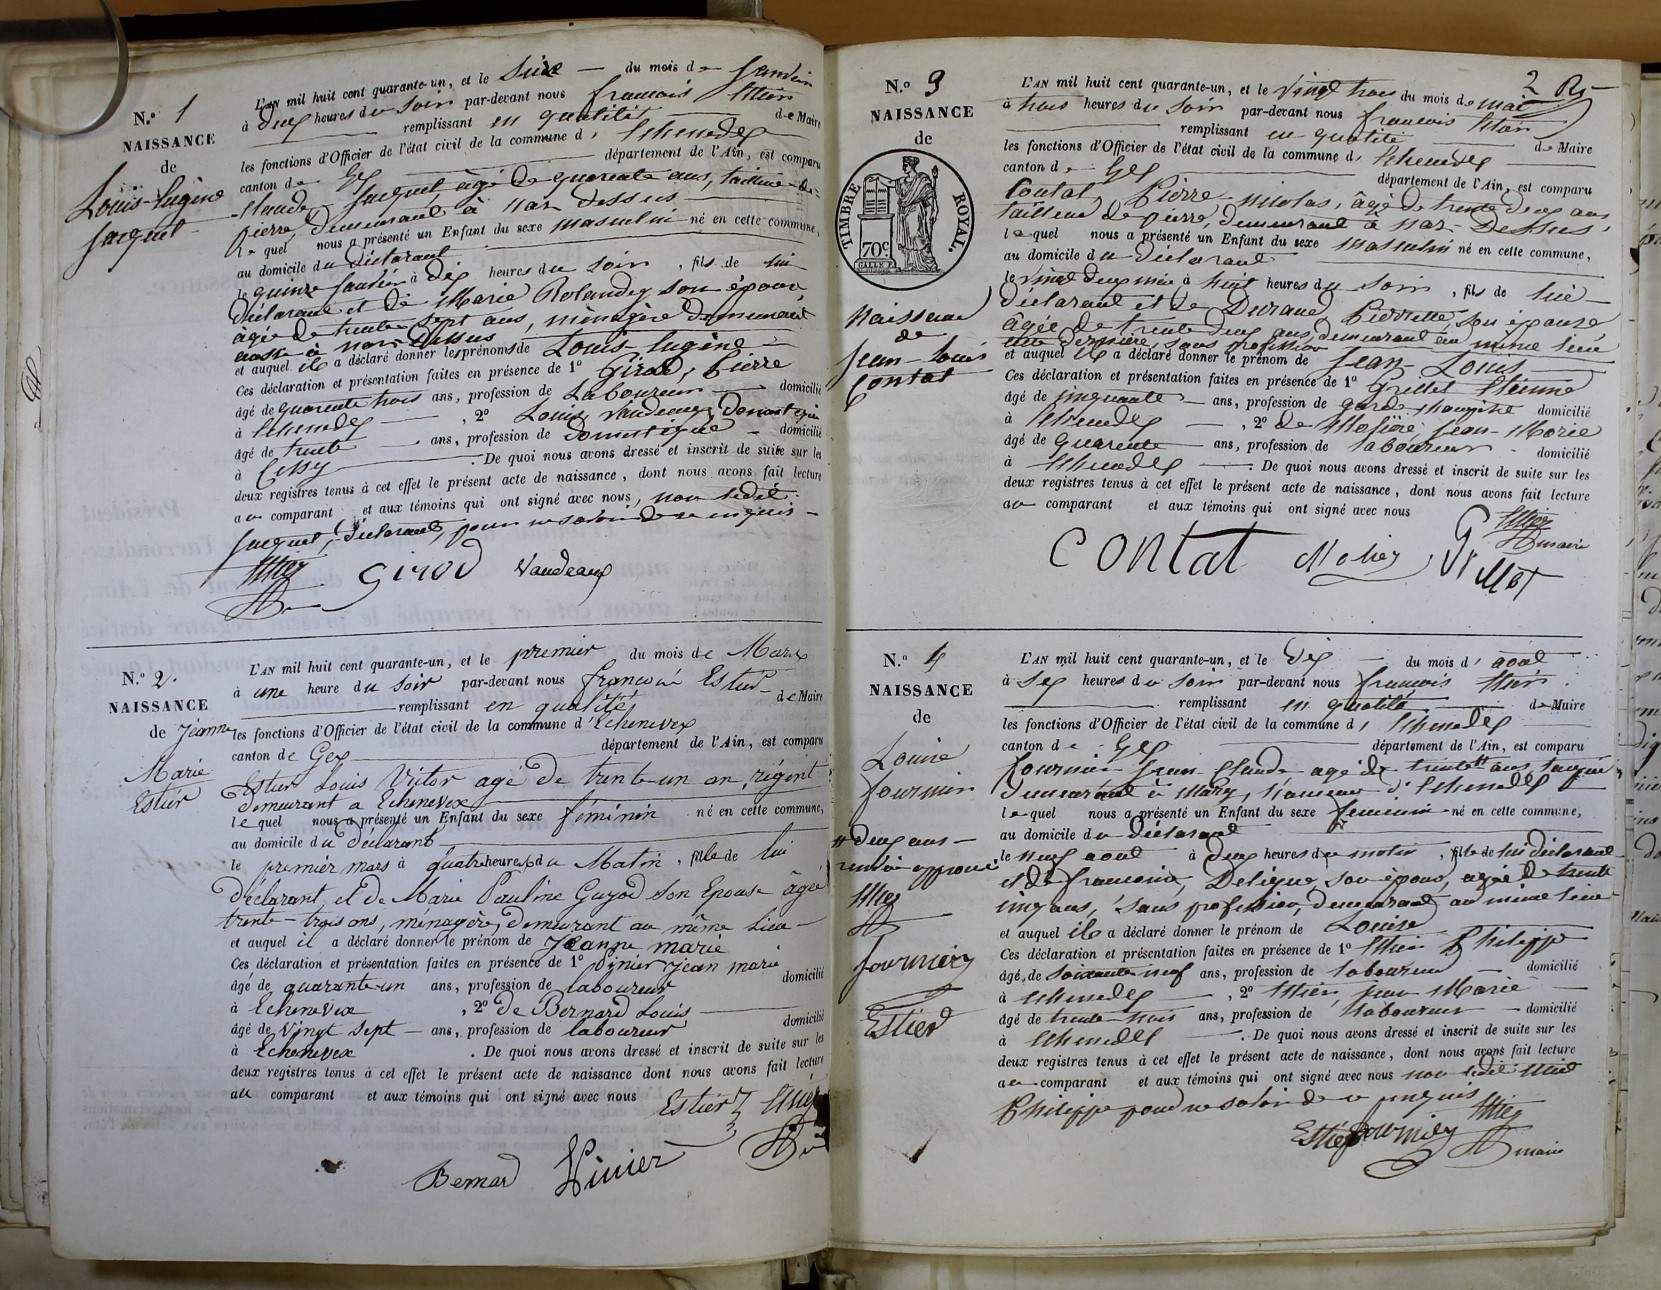 N.º 1
NAISSANCE
de
Louis-Eugène
Jacquet
L'AN mil huit cent quarante-un, et le Seize du mois de Janvier
à deux heures du Soir par-devant nous françois Estier
remplissant en qualité de Maire
les fonctions d'Officier de l'état civil de la commune d' Echenevex
canton de Gex département de l'Ain, est comparu
Claude Jacquet âgé de quarente ans, tailleur de
pierre, demeurant à Nax-dessus
lequel nous a présenté un Enfant du sexe masculin né en cette commune,
au domicile du déclarant
le quinze Janvier à dix heures du soir, fils de lui
déclarant et de Marie Rolandez son épouse,
âgée de trente sept ans, ménagère demeurant
aussi à Nax-Dessus
et auquel il a déclaré donner les prénoms de Louis-Eugène
Ces déclaration et présentation faites en présence de 1º Girod, Pierre
âgé de quarente trois ans, profession de Laboureur domicilié
à Echenevex, 2º Louis Vaudeaux Domestique
âgé de trente ans, profession de Domestique domicilié
à Cessy. De quoi nous avons dressé et inscrit de suite sur les
deux registres tenus à cet effet le présent acte de naissance, dont nous avons fait lecture
au comparant et aux témoins qui ont signé avec nous, non ledit
Jacquet, déclarant, pour ne savoir de ce enquis
Estier Girod Vaudeaux
N.º 2.
NAISSANCE
de Jeanne
Marie
Estier
L'AN mil huit cent quarante-un, et le premier du mois de Mars
à une heure du soir par-devant nous françois Estier
remplissant en qualité de Maire
les fonctions d'Officier de l'état civil de la commune d'Echenevex
canton de Gex département de l'Ain, est comparu
Estier Louis Victor agé de trente-un an, régent
demeurant a Echenevex
lequel nous a présenté un Enfant du sexe féminin né en cette commune,
au domicile du déclarant
le premier mars à quatre heures du Matin, fille de lui
déclarant, et de Marie Pauline Guyod son Epouse âgée
trente-trois ans, ménagère, demeurant au même lieu
et auquel il a déclaré donner le prénom de Jeanne marie
Ces déclaration et présentation faites en présence de 1º Vinier Jean marie
âgé de quarante-un ans, profession de laboureur domicilié
à Echenevex, 2º de Bernard Louis
âgé de Vingt sept ans, profession de laboureur domicilié
à Echenevex. De quoi nous avons dressé et inscrit de suite sur les
deux registres tenus à cet effet le présent acte de naissance dont nous avons fait lecture
au comparant et aux témoins qui ont signé avec nous
Estier Estier
Bernard Vinier
2
N.º 3
NAISSANCE
de
TIMBRE ROYAL.
70c
Naissance
de
Jean-Louis
Contat
L'AN mil huit cent quarante-un, et le Vingt trois du mois de mai
à trois heures du Soir par-devant nous françois Estier
remplissant en qualité de Maire
les fonctions d'Officier de l'état civil de la commune d' Echenevex
canton de Gex département de l'Ain, est comparu
Contat, Pierre-nicolas, âgé de trente deux ans
tailleur de pierre, demeurant à Nax-Dessus,
lequel nous a présenté un Enfant du sexe masculin né en cette commune,
au domicile du déclarant
le vingt deux mai à huit heures du soir, fils de lui
déclarant et de Durand Pierrette, son épouse
âgée de trente deux ans, demeurant au même lieu
sans profession
et auquel il a déclaré donner le prénom de Jean-Louis
Ces déclaration et présentation faites en présence de 1º Grillet Etienne
âgé de cinquante ans, profession de garde champêtre domicilié
à Echenevex, 2º de Jean-Marie
âgé de quarente ans, profession de laboureur domicilié
à Echenevex. De quoi nous avons dressé et inscrit de suite sur les
deux registres tenus à cet effet le présent acte de naissance, dont nous avons fait lecture
au comparant et aux témoins qui ont signé avec nous
Estier
maire
CONTAT
N.º 4
NAISSANCE
de
Louise
fournier
deux ans
renvoi approuvé
Estier
fournier
Estier
L'AN mil huit cent quarante-un, et le Dix du mois d' août
à Six heures du Soir par-devant nous françois Estier
remplissant en qualité de Maire
les fonctions d'Officier de l'état civil de la commune d' Echenevex
canton de Gex département de l'Ain, est comparu
fournier Jean-Claude agé de trente ans
demeurant à Mury, hameau d'Echenevex
lequel nous a présenté un Enfant du sexe féminin né en cette commune,
au domicile du déclarant
le neuf août à deux heures du matin, fille de lui déclarant
et de françoise, son épouse, agée de trente
cinq ans, sans profession, demeurant au même lieu
et auquel il a déclaré donner le prénom de Louise
Ces déclaration et présentation faites en présence de 1º Estier Philippe
âgé de soixante neuf ans, profession de laboureur domicilié
à Echenevex, 2º Estier, Jean Marie
âgé de trente trois ans, profession de laboureur domicilié
à Echenevex. De quoi nous avons dressé et inscrit de suite sur les
deux registres tenus à cet effet le présent acte de naissance, dont nous avons fait lecture
au comparant et aux témoins qui ont signé avec nous non ledit Estier
Philippe pour ne savoir de ce enquis
Estier fournier Estier
maire